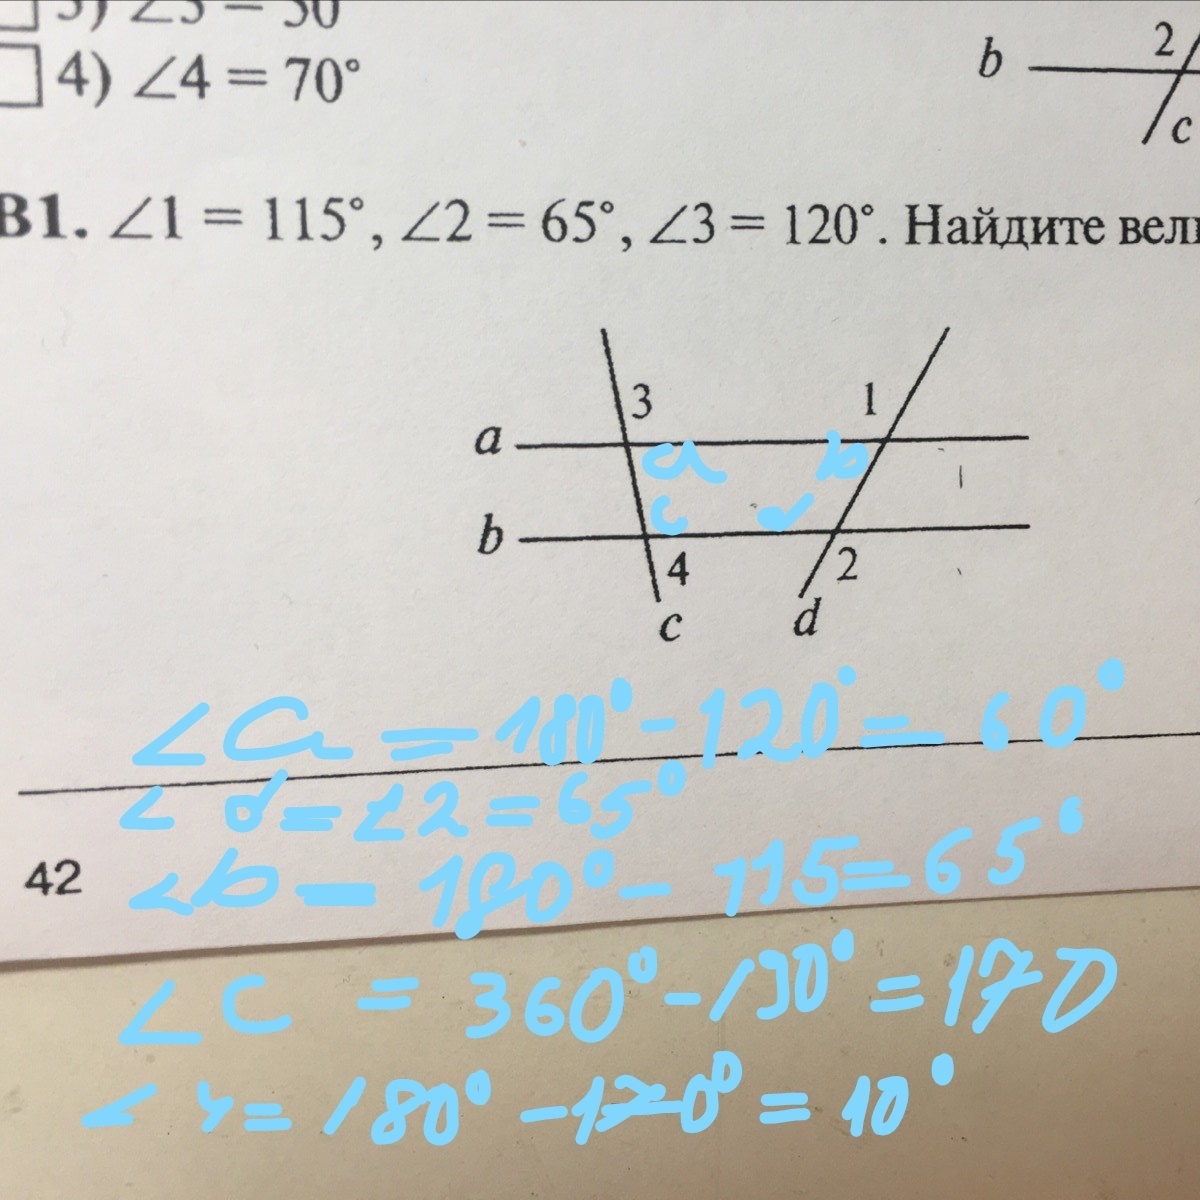 3) ∠3 = 50
4) ∠4 = 70°
b
2
c
B1. ∠1 = 115°, ∠2 = 65°, ∠3 = 120°. Найдите
3
1
a
a
b
c
d
b
4
2
c
d
∠a = 180° - 120° = 60°
∠d = ∠2 = 65°
42
∠b = 180° - 115 = 65°
∠c = 360° - 190° = 170
∠4 = 180° - 170° = 10°